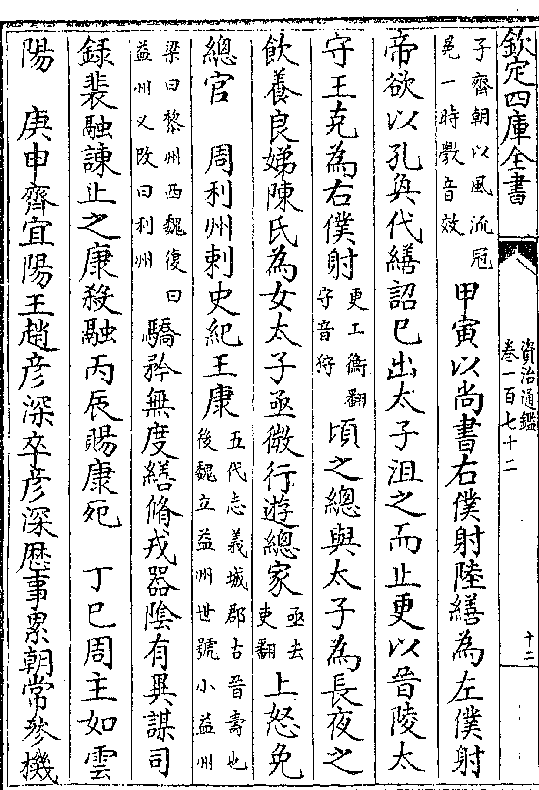 欽定四庫全書
資治通鑑
卷一百七十二
十二
子齊朝以風流冠
冕一時斅音效
甲寅以尚書右僕射陸繕為左僕射
帝欲以孔奐代繕詔已出太子沮之而止更以晉陵太
守王克為右僕射
更工衡翻
守音狩
頃之總與太子為長夜之
飲養良娣陳氏為女太子亟微行遊總家
亟去
吏翻
上怒免
總官 周利州刺史紀王康
五代志義城郡古晉壽也
後魏立益州世號小益州
梁曰黎州西魏復曰
益州又改曰利州
驕矜無度繕脩戎器陰有異謀司
録裴融諫止之康殺融丙辰賜康死 丁巳周主如雲
陽 庚申齊宜陽王趙彦深卒彦深歴事累朝常參機